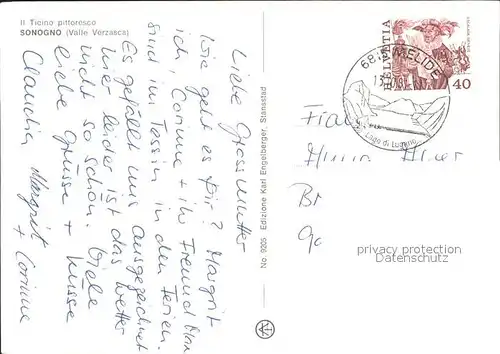 Il Ticino pittoresco
SONOGNO (Valle Verzasca)
Liebe Grossmutter
Wie geht es Dir? Margrit
ich, Corinne + ihr Freund
sind im Tessin in den Ferien.
Es gefällt uns ausgezeichnet
nur leider ist das Wetter
nicht so schön. Viele
liebe Grüsse + Küsse
Claudia Margrit
+ Corinne
No. 9205 Edizione Karl Engelberger, Stansstad
HELVETIA
40
MELIDE
Lago di Lugano
Frau
privacy protection
Datenschutz